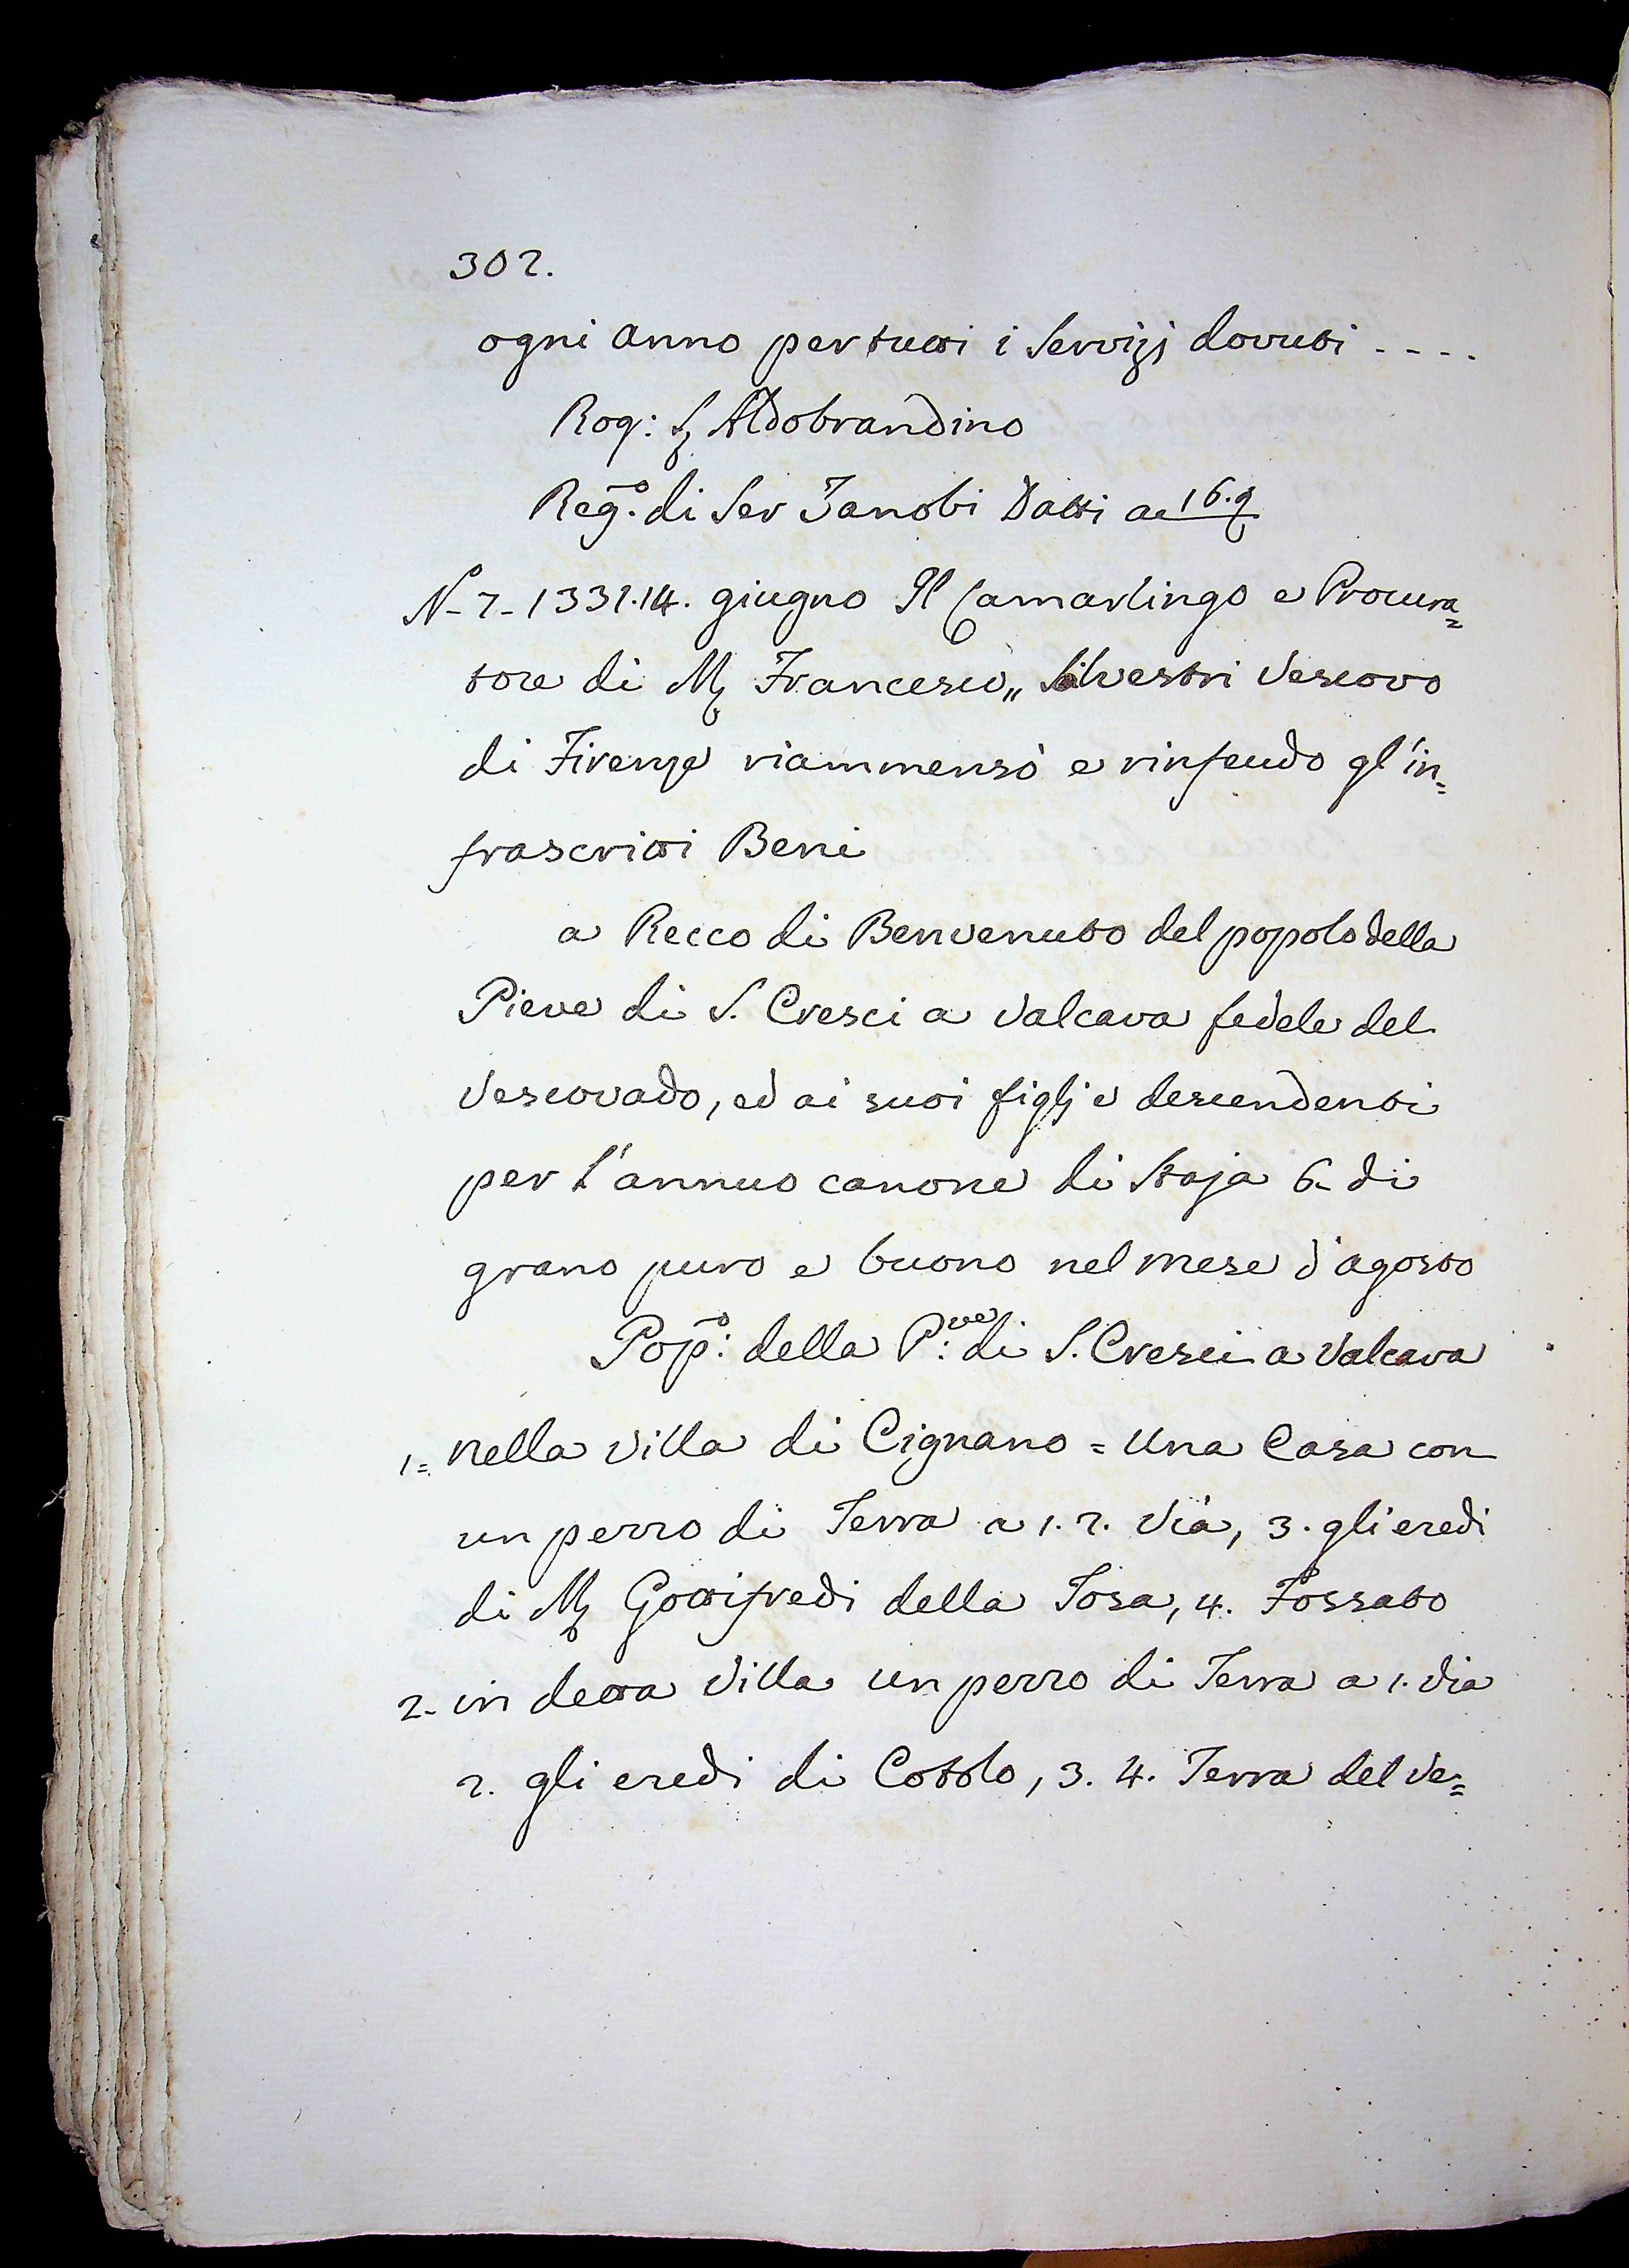 302.
ogni anno per tutti i Servizj dovuti ....
Rog: S. Aldobrandino
Reg.o di Ser Zanobi Datti a 16.
N-2-1331.14. giugno Il Camarlingo e Procura=
tore di M. Francesco,, Silvestri Vescovo
di Firenze riammensò e rinfeudo gl'in=
frascritti Beni
a Recco di Benvenuto del popolo della
Pieve di S. Cresci a Valcava fedele del
Vescovado, ed ai suoi figlj e descendenti
per l'annuo canone di Staja 6- di
grano puro e buono nel mese d'agosto
Pop.o: della P.ve: di S. Cresci a Valcava
1=. Nella Villa di Cignano = Una Casa con
un pezzo di Terra a 1. 2. Via, 3. gli eredi
di M. Gottifredi della Tosa, 4. Fossato
2- in detta Villa un pezzo di Terra a 1. Via
2. gli eredi di Cottolo, 3. 4. Terra del Ve=